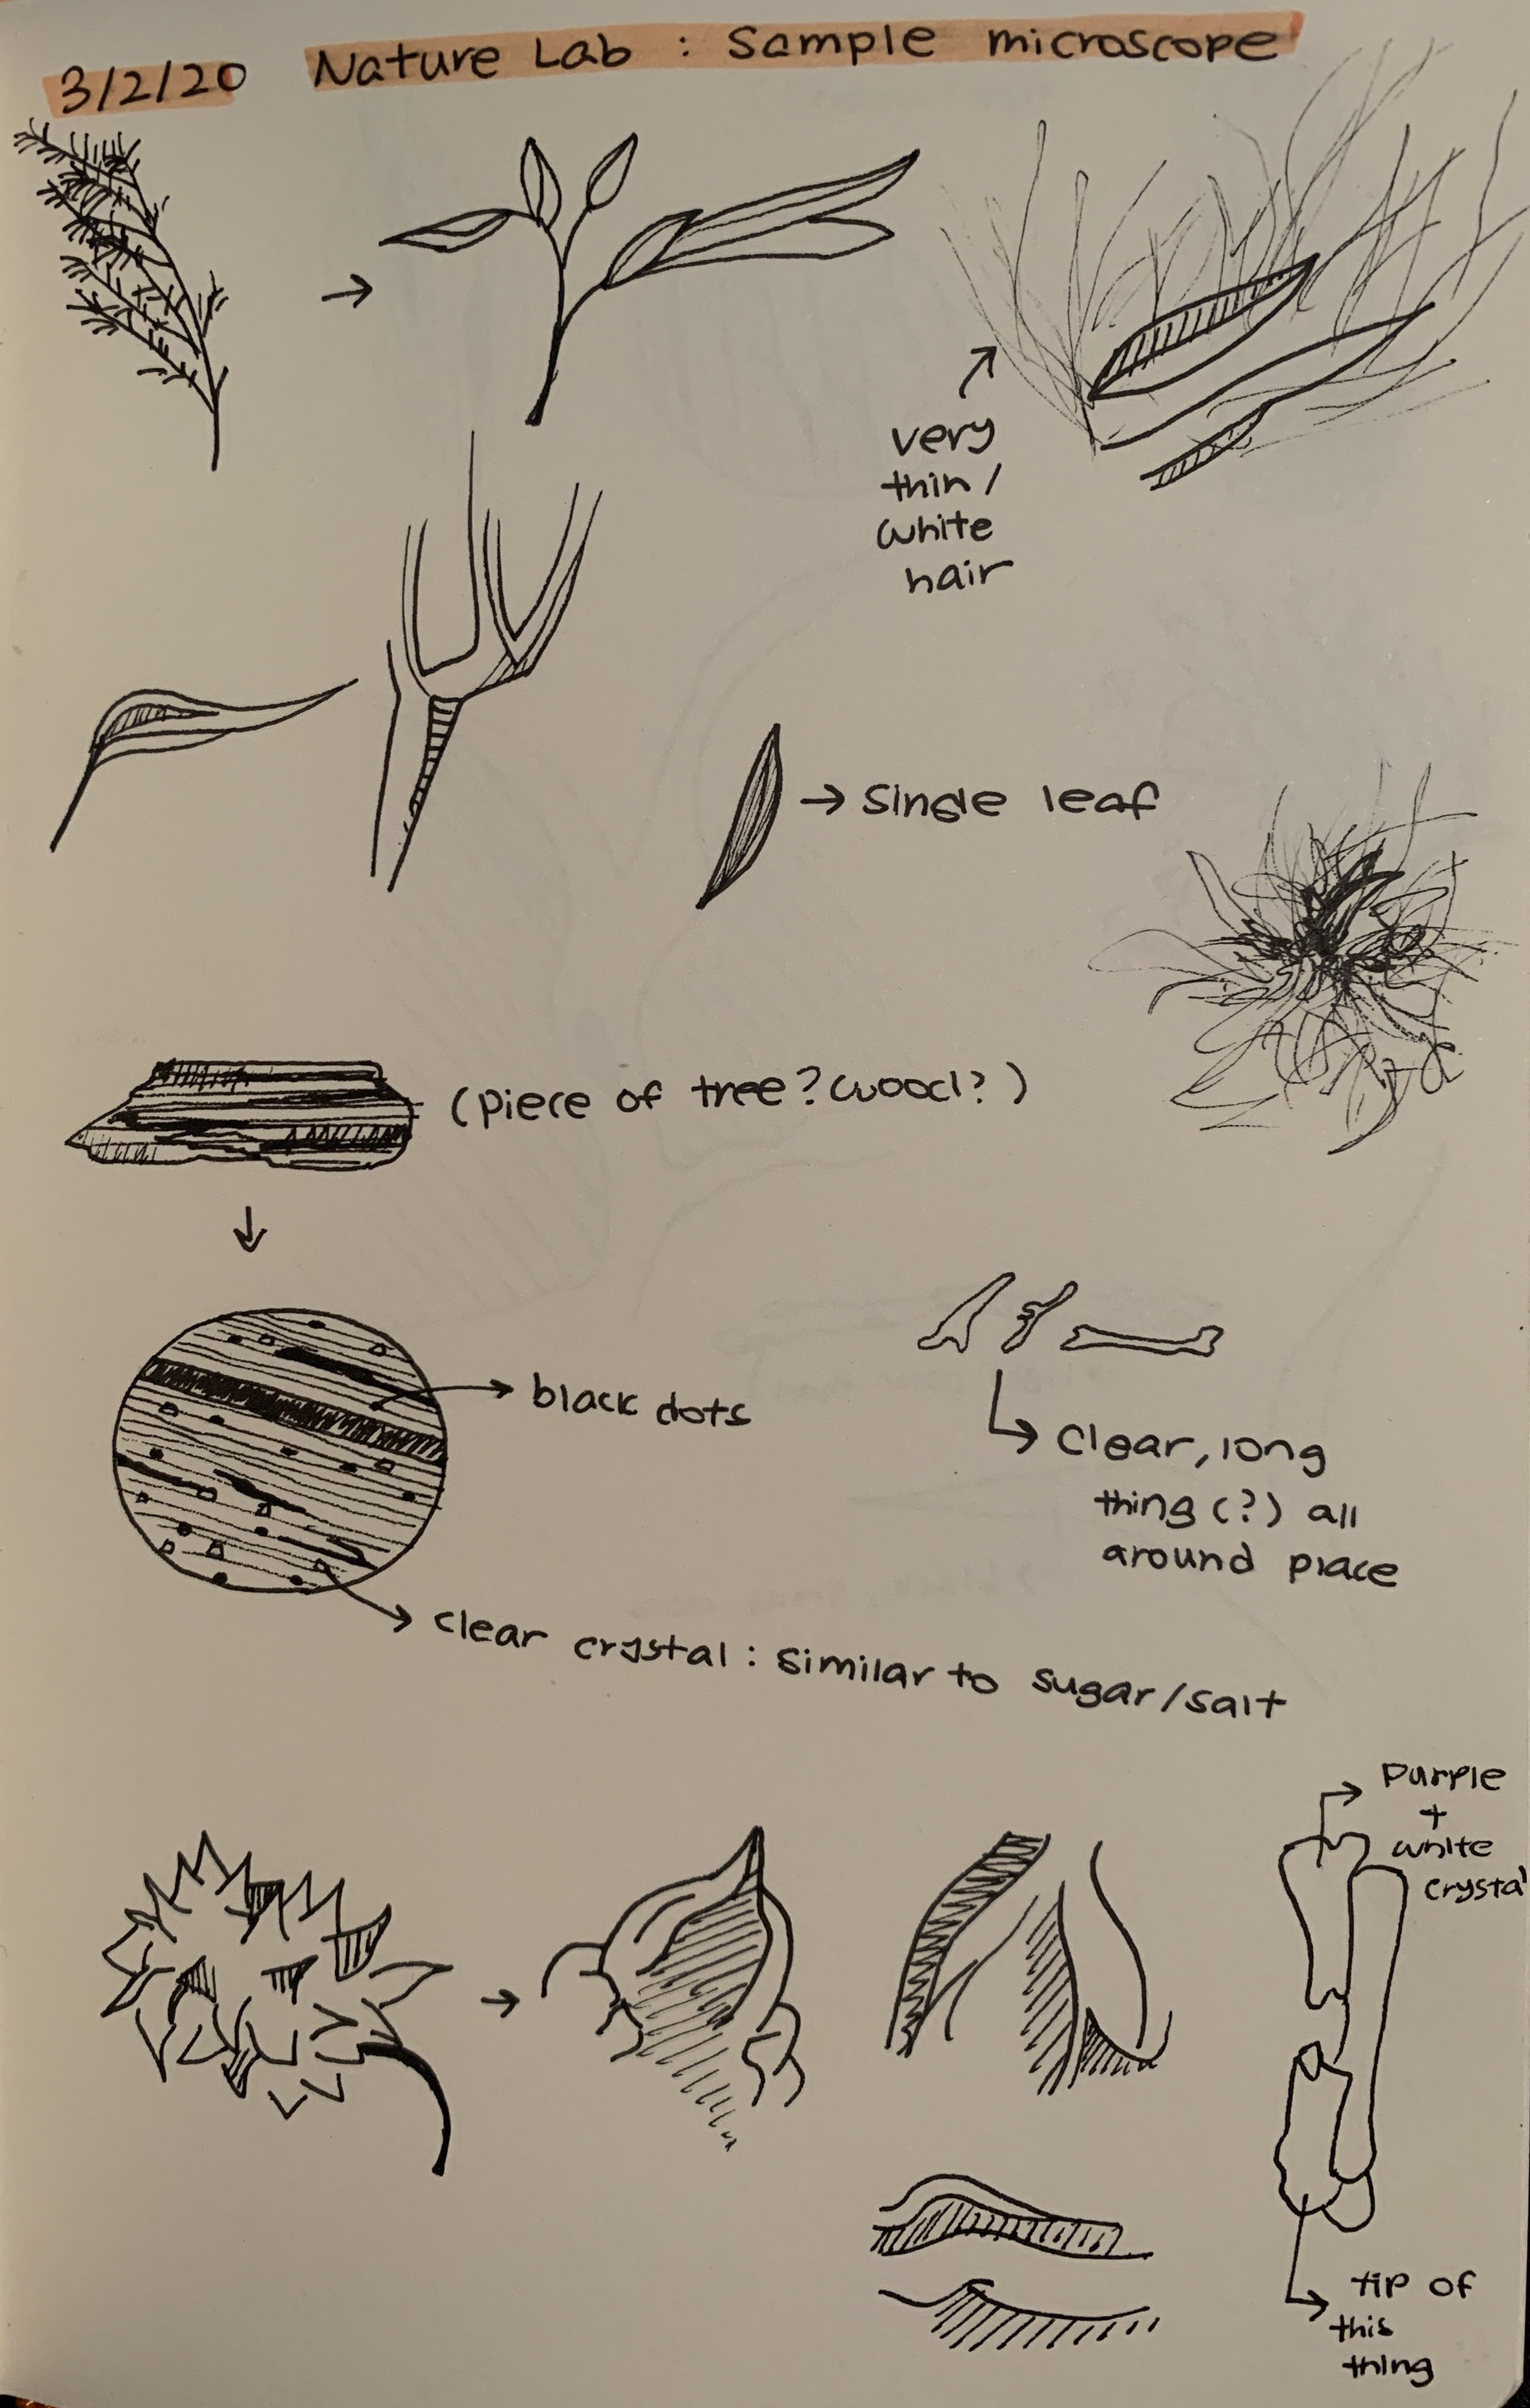 3/2/20 Nature Lab : Sample microscope
very
thin /
white
hair
→ single leaf
(piece of tree? wood?)
black dots
clear, long
thing (?) all
around place
clear crystal : similar to sugar/salt
purple
+
white
crystal
tip of
this
thing